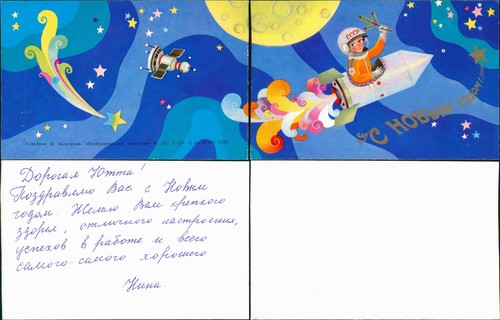 СССР
С НОВЫМ ГОДОМ!
Дорогая Ютта!
Поздравляю Вас с Новым
годом. Желаю Вам крепкого
здоровья, отличного настроения,
успехов в работе и всего
самого-самого хорошего.
Нина.